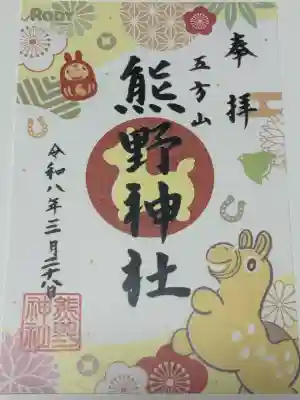 Rody
奉拝
五方山
熊野神社
令和八年三月二十八日
熊野
神社